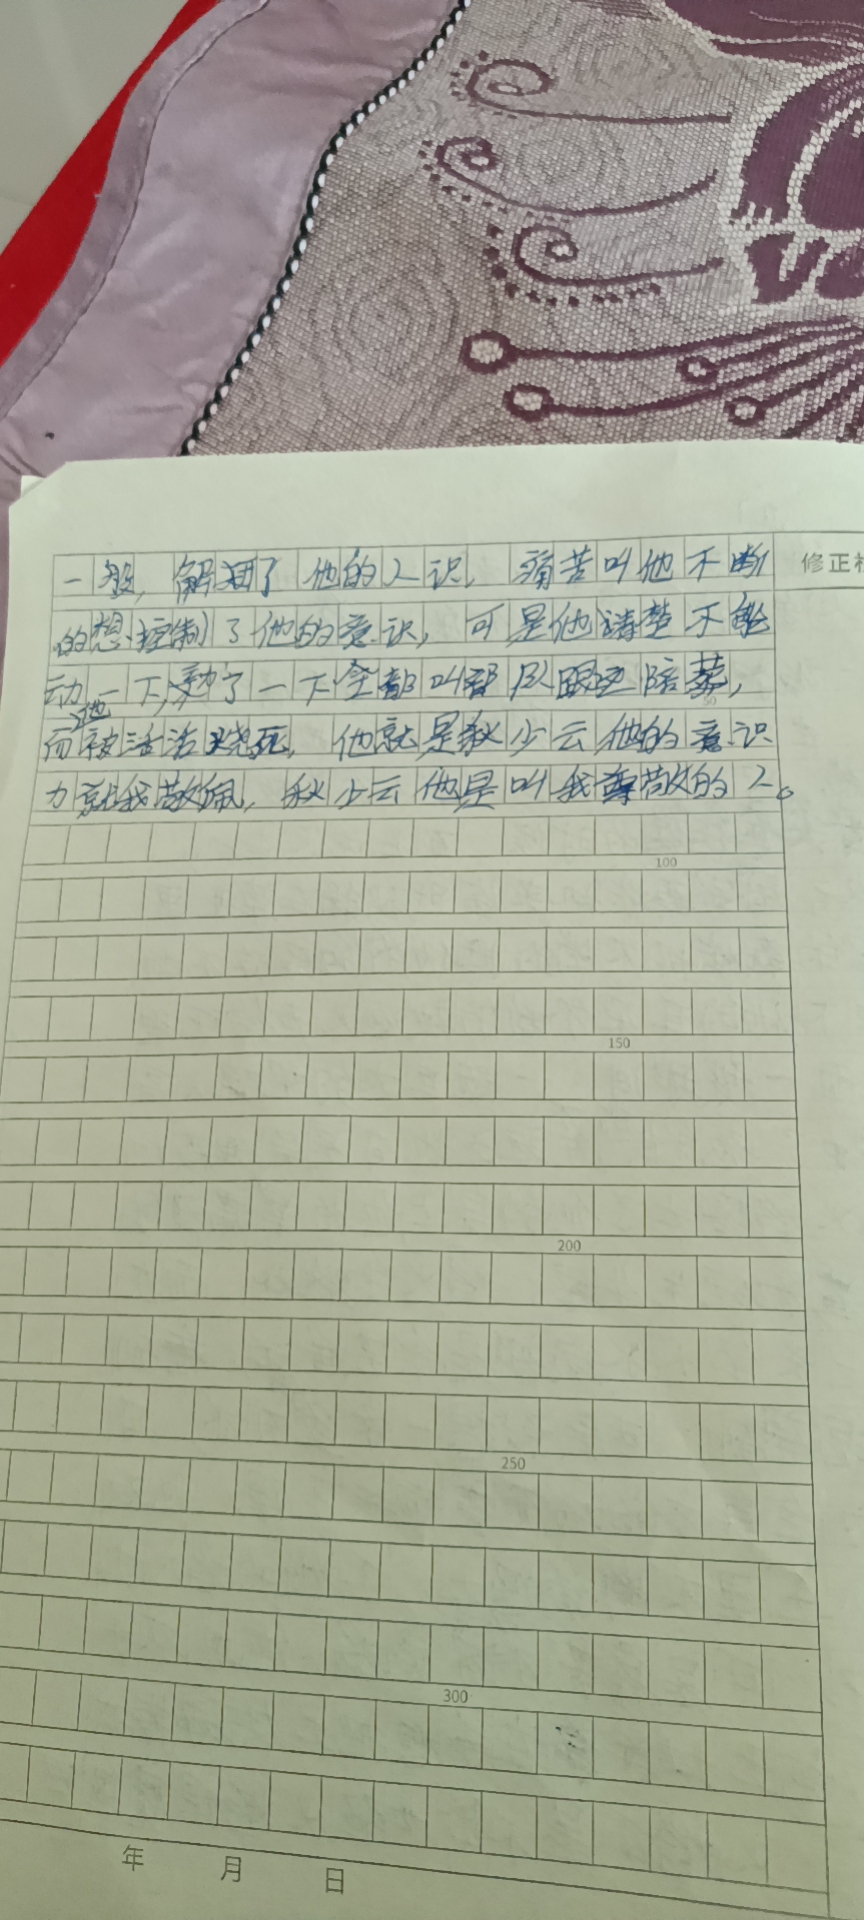 一般，解困了他的人识，痛苦叫他不断
的想控制了他的意识，可是他清楚不能
动一下，动了一下全部叫部队跟他陪葬，
他
而被活活烧死，他就是秋少云他的意识
力就我敬佩，秋少云他是叫我尊敬的人。
修正
50
100
150
200
250
300
年 月 日